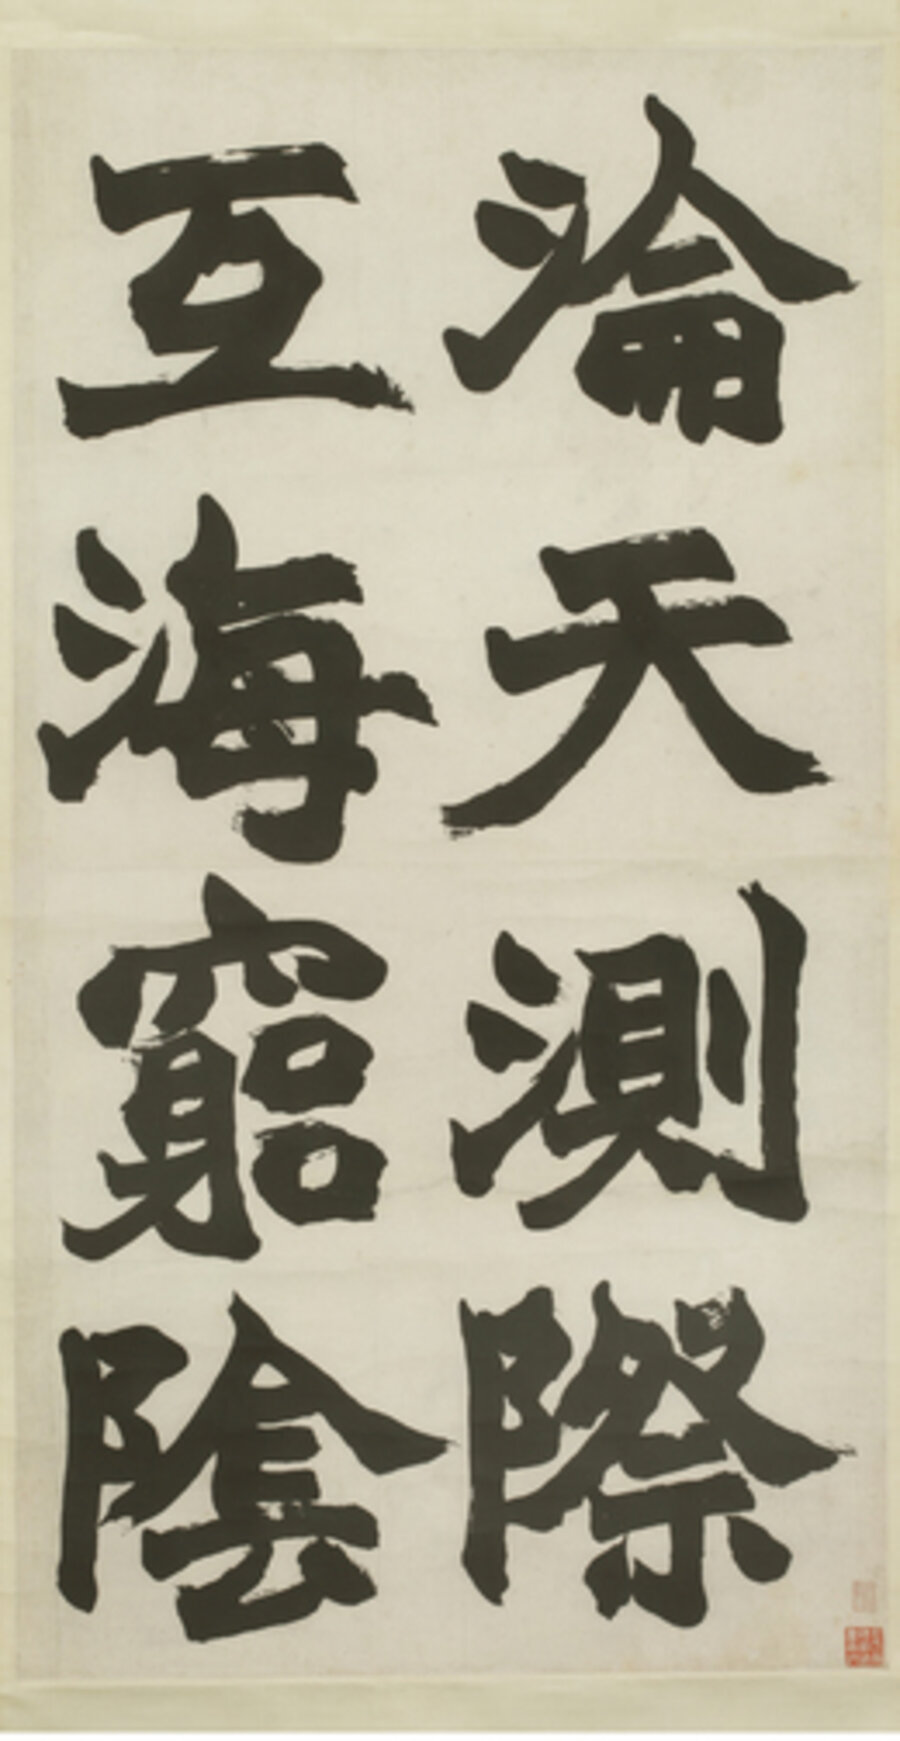 淪天測際
互海窮陰